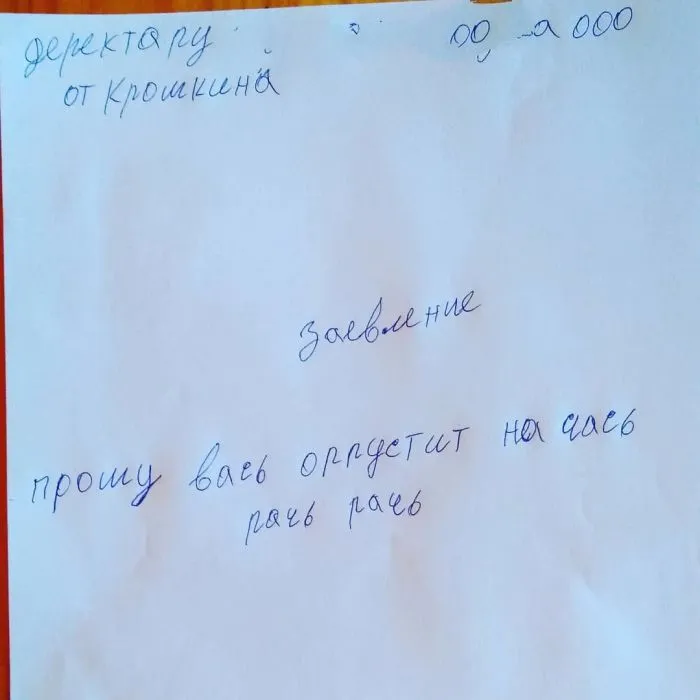 деректару оо а ооо
от Крошкина
заевление
прошу вась орпустит на чась
рачь рачь